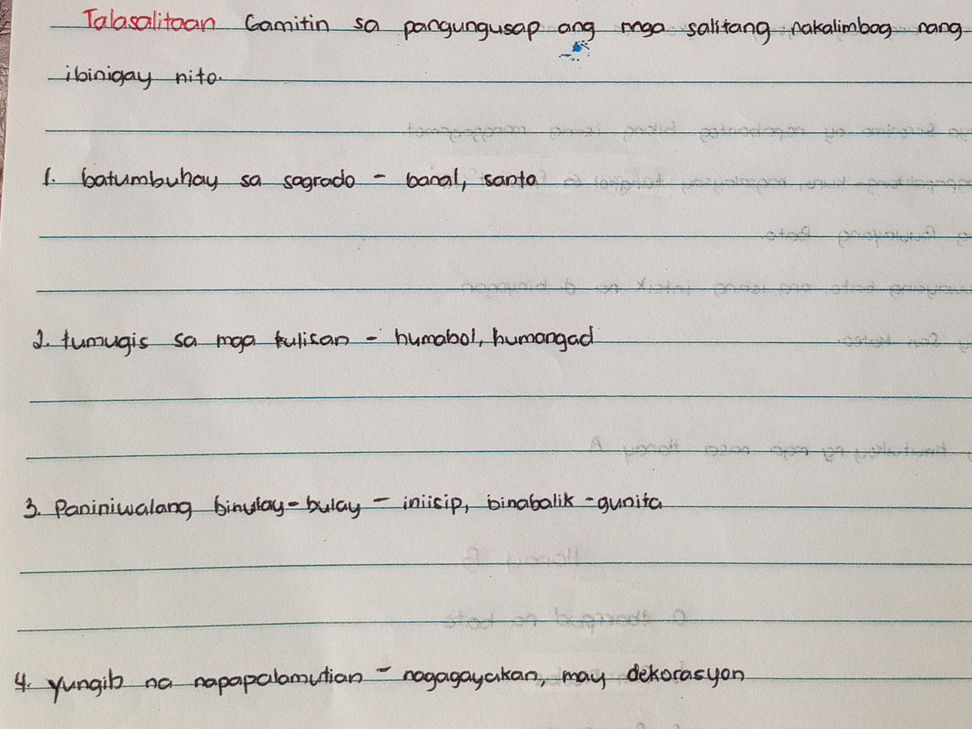 Talasalitaan Gamitin sa pangungusap ang mga salitang nakalimbag nang
ibinigay nito.
1. batumbuhay sa sagrado - banal, santo
2. tumugis sa mga tulisan - humabol, humangad
3. Paniniwalang binulay-bulay - iniisip, binabalik-gunita
4. yungib na napapalamutian - nagagayakan, may dekorasyon